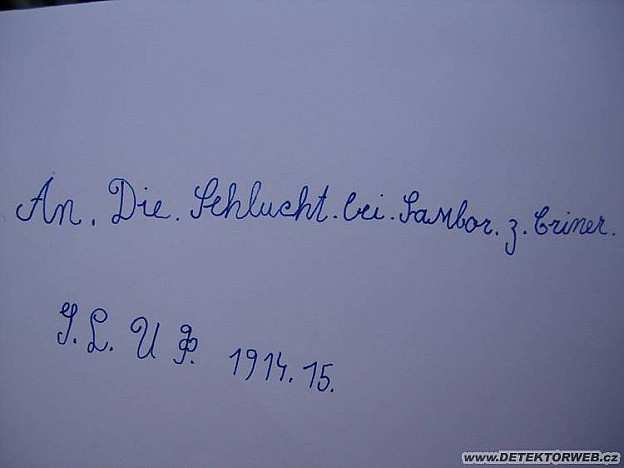 An. Die. Schlucht. bei. Sambor. z. Eriner.
I. L. U P. 1914. 15.
www.DETEKTORWEB.cz